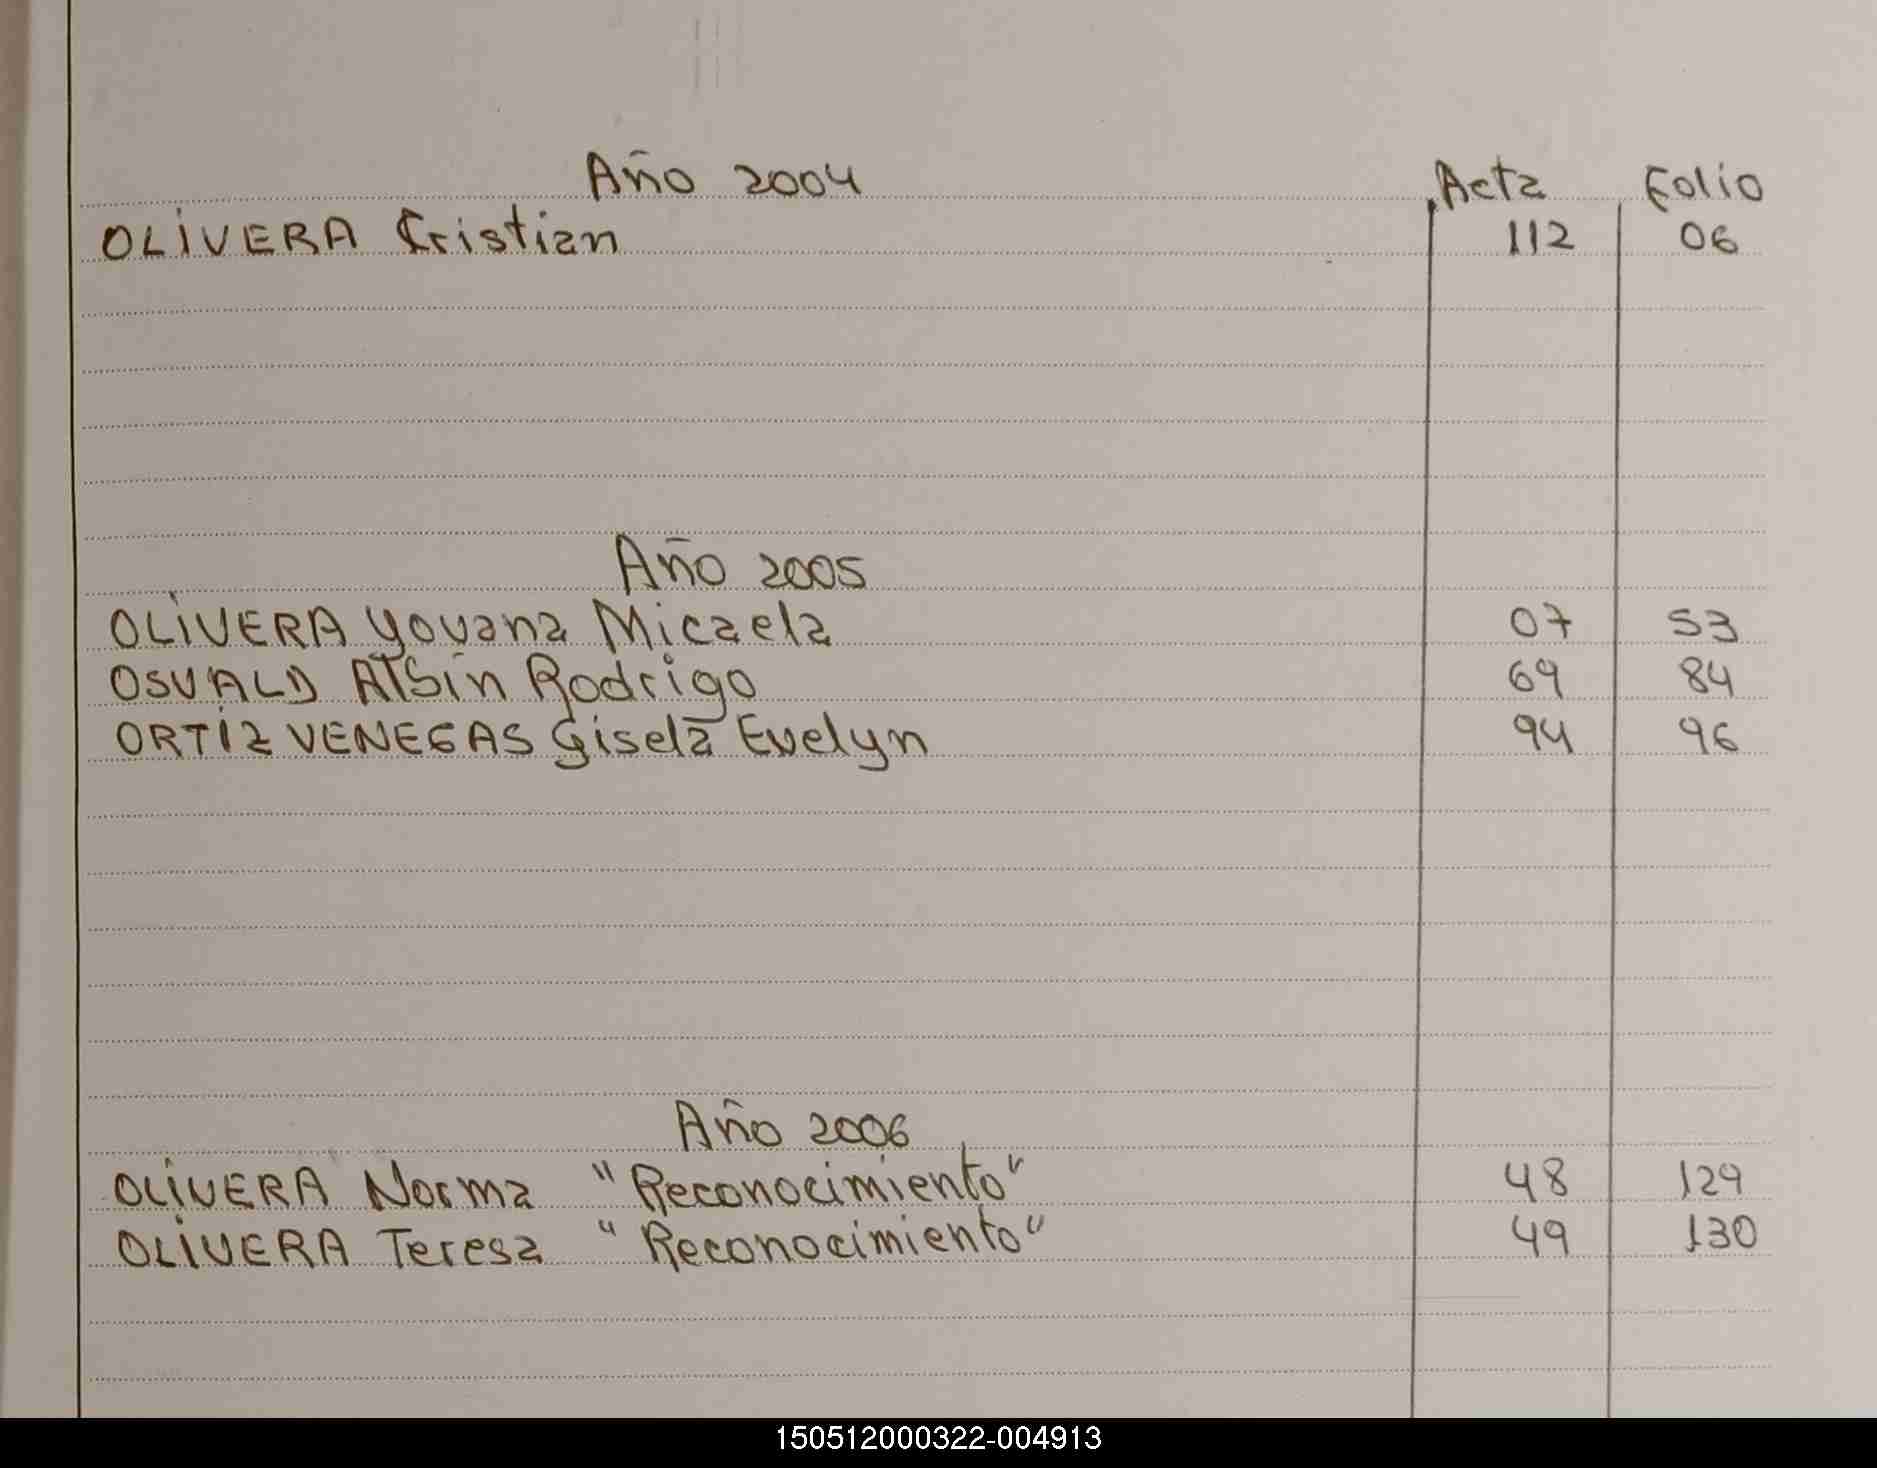 Año 2004 Acta Folio
OLIVERA Cristian 112 06
Año 2005
OLIVERA Yovana Micaela 07 53
OSVALD Rodrigo 69 84
ORTIZ VENEGAS Gisela Evelyn 94 96
Año 2006
OLIVERA Norma "Reconocimiento" 48 129
OLIVERA Teresa "Reconocimiento" 49 130
150512000322-004913